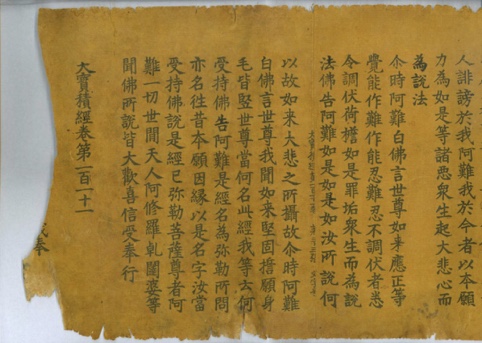 人誹謗於我阿難我於今者以本願
力為如是等諸惡衆生起大悲心而
為說法
尒時阿難白佛言世尊如来應正等
覺能作難作能忍難忍不調伏者悉
令調伏荷擔如是罪垢衆生而為說
法佛告阿難如是如是如汝所說何
以故如来大悲之所攝故尒時阿難
白佛言世尊我聞如来堅固擔願身
毛皆竪世尊當何名此經我等云何
受持佛告阿難是經名為弥勒所問
亦名往昔本願因緣以是名字汝當
受持佛說是經已弥勒菩薩尊者阿
難一切世間天人阿修羅乹闥婆等
聞佛所說皆大歡喜信受奉行
大寶積經卷第一百一十一
奉